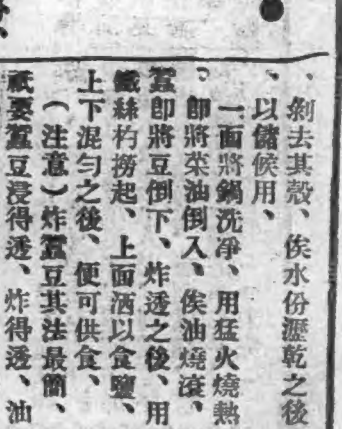 、剝去其殼、俟水份瀝乾之後
、以儲候用、
一面將鍋洗凈、用猛火燒熱
。卽將菜油倒入、俟油燒滾、
蠶卽將豆倒下、炸透之後、用
鐵絲杓撈起、上面洒以食鹽、
上下混勻之後、便可供食、
（注意）炸蠶豆其法最簡、
祇要蠶豆浸得透、炸得透、油